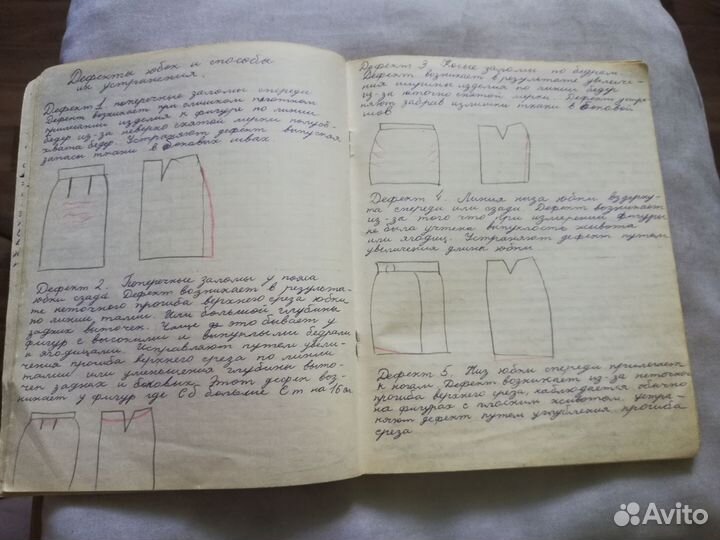 Дефекты юбок и способы
их устранения.
Дефект 1. поперечные заломы спереди
Дефект возникает при слишком плотном
прилегании изделия к фигуре по линии
бедер из-за неверно снятой мерки полуоб-
хвата бедер. Устраняют дефект выпуская
запасы ткани в боковых швах.
Дефект 2. Поперечные заломы у пояса
юбки сзади. Дефект возникает в результа-
те неточного прогиба верхнего среза юбки
по линии талии. Или большой глубины
задних вытачек. Чаще это бывает у
фигур с высокими и выпуклыми бедрами
и ягодицами. Исправляют путем увели-
чения прогиба верхнего среза по линии
талии или уменьшения глубины выто-
чек задних и боковых. Этот дефект воз-
никает у фигур где Сб больше Ст на 16 см.
Дефект 3. Косые заломы по бедрам
Дефект возникает в результате увеличе-
ния ширины изделия по линии бедер
из-за неточно снятой мерки. Дефект устра-
няют забрав излишки ткани в боковой
шов.
Дефект 4. Линия низа юбки вздерну-
та спереди или сзади. Дефект возникает
из-за того что при измерении фигуры
не была учтена выпуклость живота
или ягодиц. Устраняют дефект путем
увеличения длины юбки.
Дефект 5. Низ юбки спереди прилегает
к ногам. Дефект возникает из-за неточного
прогиба верхнего среза, наблюдается обычно
на фигурах с плоским животом. Устра-
няют дефект путем углубления прогиба
среза
Avito